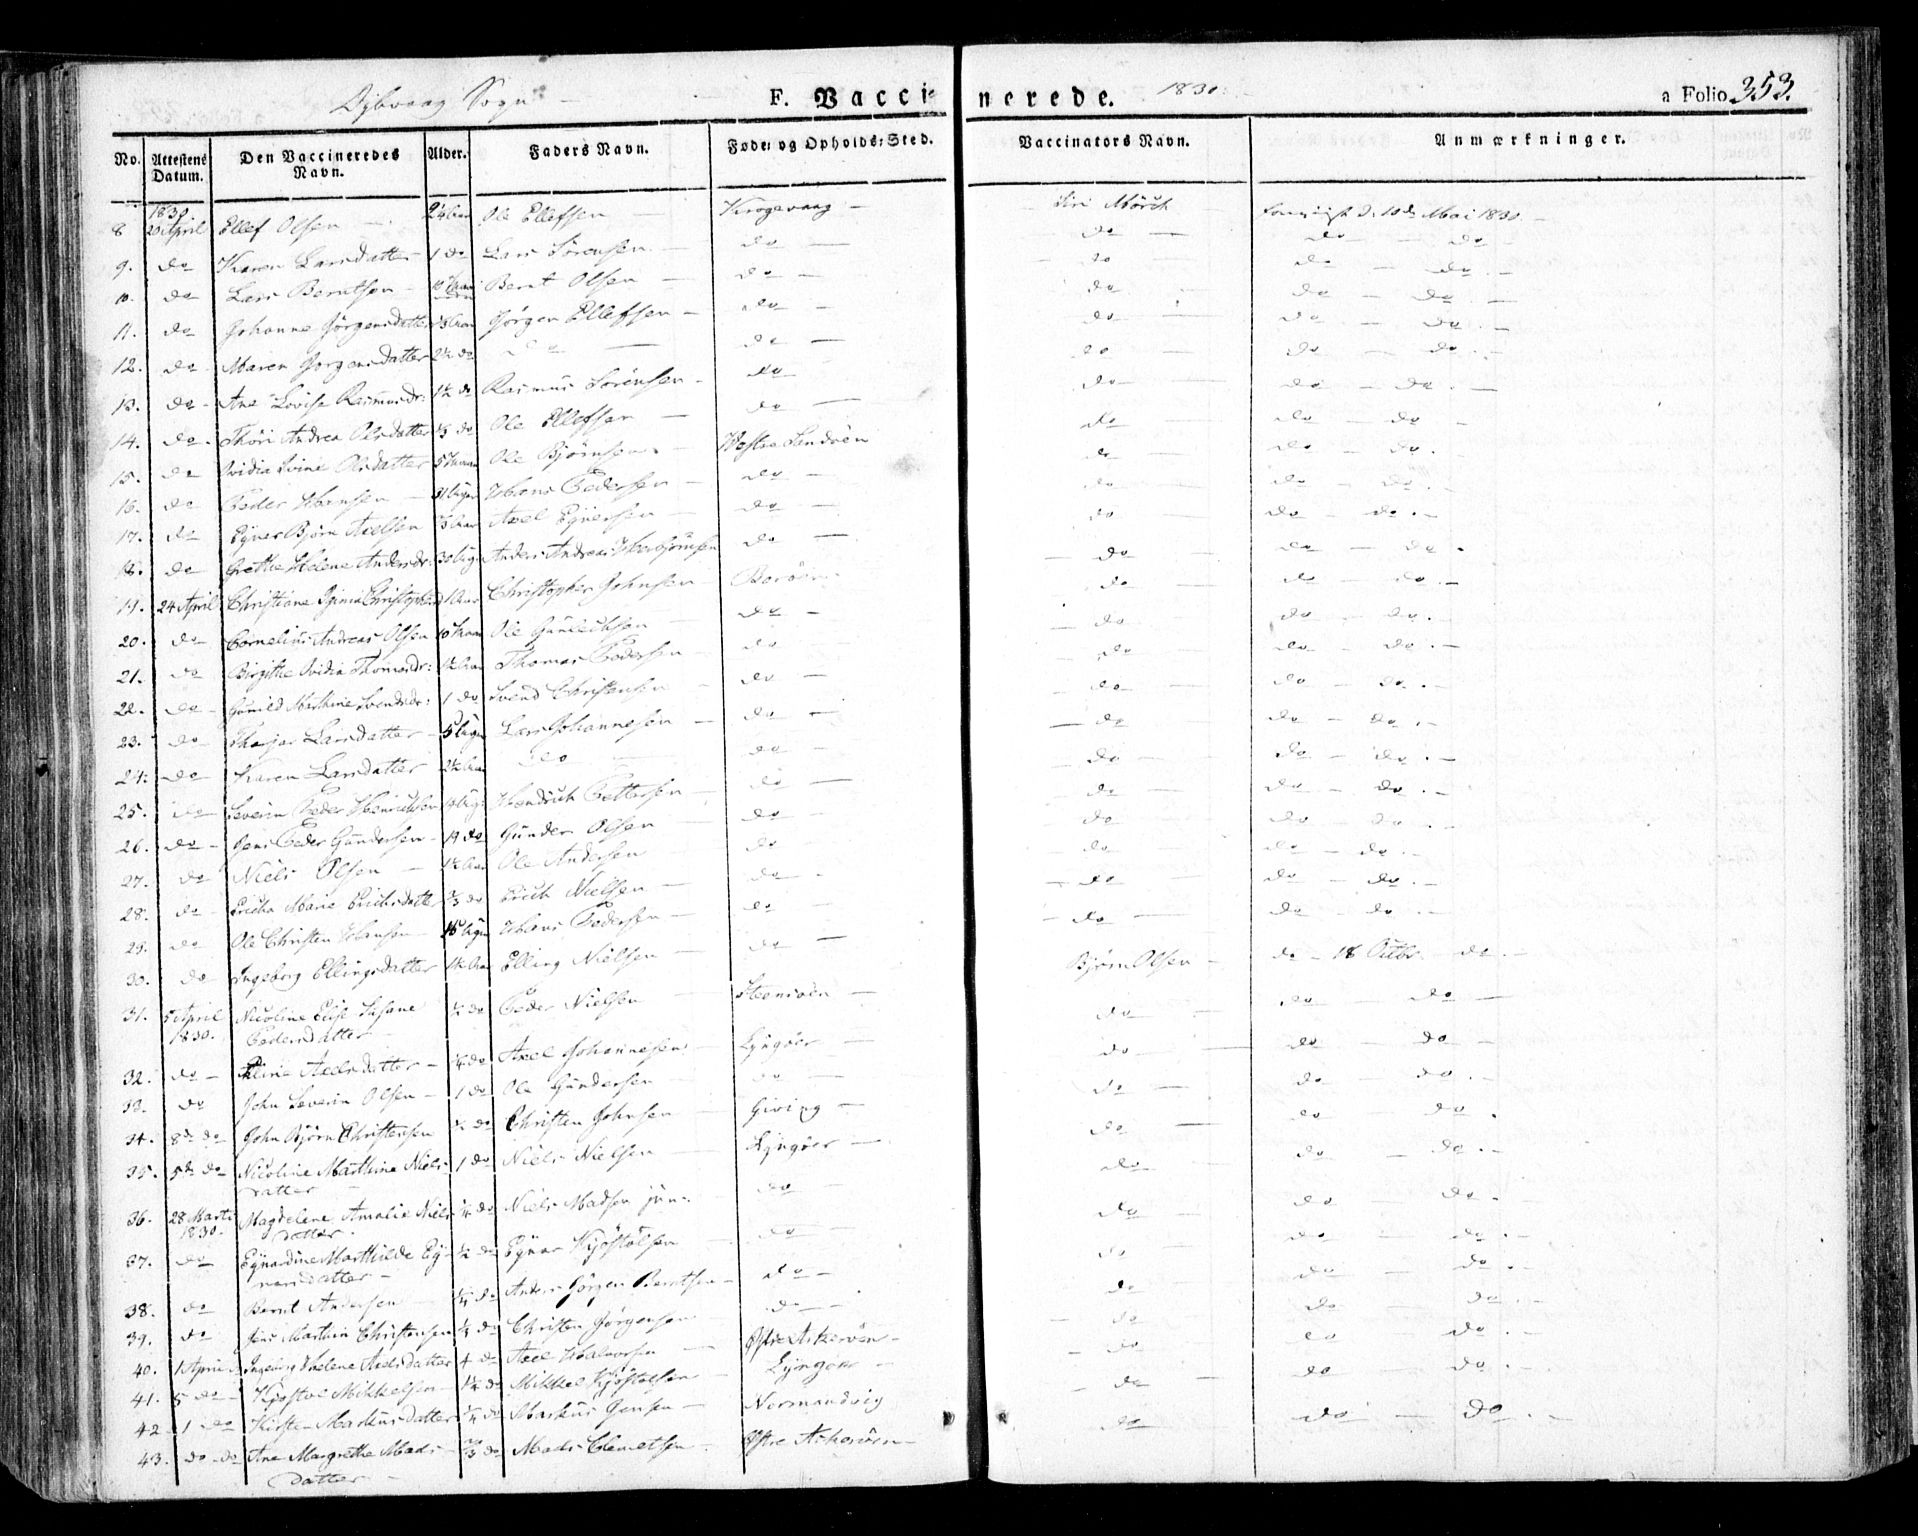 Dybvaag Sogn – F. Vaccinerede. 1830. a Folio 353.
No. Attestens Datum. Den Vaccineredes Navn. Alder. Faders Navn. Føde- og Opholds-Sted. Vaccinators Navn. Anmærkninger.
8 1830 20 April Ellef Olsen – 2¼ Aar Ole Ellefsen – Krogevaag – Siri Mörch d. 10de Mai 1830 –
9. do Karen Larsdatter 1 do Lars Sörensen – do – do – do – do –
10. do Lars Berntsen – Bernt Olsen – do – do – do – do –
11. do Johanne Jörgensdatter Jörgen Ellefsen – do – do – do – do –
12. do Maren Jörgensdatter 2½ do do – do – do – do – do –
13. do Ane Lovise Rasmusdr: 1½ do Rasmus Sörensen – do do – do – do –
14. do Thöri Andrea Olsdatter do Ole Ellefsen – do – do – do – do –
15. do Ovidia Olsdatter Ole Björnsen – Westre Sandöen do – do – do –
16. do Peder Hansen – Hans Pedersen – do – do – do – do –
17. do Eyner Björn Axelsen Axel Eynersen – do – do – do – do –
18. do Grethe Helene Andersdr: Anders Andreas do – do – do – do –
19. 24 April Christiane Christophersd 1 Aar Christopher Johnsen – Boröen – do – do – do –
20. do Cornelius Andreas Olsen Ole Gunleiksen – do – do – do – do –
21. do Birgithe Ovidia Thomasdr: 1½ Aar Thomas Pedersen – do do – do – do –
22. do Gunild Marthine Svendsdr: 1 do Svend Christensen – do – do – do – do –
23. do Larsdatter – Lars Johannesen – do – do – do – do –
24. do Karen Larsdatter 2½ Aar do – do – do – do – do –
25. do Severin Peder Henriksen Hendrich Pettersen – do – do – do – do –
26. do – Jens Peder Gundersen – 14 do Gunder Olsen – do – do – do – do –
27. do Niels Olsen – 1½ Aar Ole Andersen do – do – do – do –
28. do – Ericka Marie Erichsdatter ¾ do Erich Nielsen – do – do – do – do –
29. do Ole Christen Hansen – Hans Pedersen – do – do – do – do –
30. do Ingeborg Ellingsdatter Elling Nielsen – do – Björn Olsen – do – 18 Octbr. – do –
31. 5 April 1830. Nicoline Elise Susane Pedersdatter ½ do Peder Nielsen – do – do – do –
32. do – Axelsdatter – ¼ do Axel Johannesen – Lyngöer – do – do – do –
33. do John Severin Olsen – 1 do Ole Gundersen – do – do – do – do –
34. 8de do John Björn Christensen ½ do Christen Johnsen – Giving – do – do – do –
35. 5de do Nicoline Marthine Nielsdatter – 1 do Niels Nielsen – Lyngöer – do – do – do –
36. 28 Marts 1830. Magdelene Amalie Nielsdatter. ¼ do Niels Madsen jün: do – do – do – do –
37. do Eynardine Marthilde Eynersdatter – ½ do Eynar Kjöstolsen – do – do – do – do –
38. do Bernt Andersen – ¼ do Anders Jörgen Berntsen – do – do – do – do –
39. do Jens Martin Christensen ¼ do Christen Jörgensen – do – do – do – do –
40. 1 April Ingeborg Helene Axelsdatter 4 do Axel Halvorsen – Östre Askeröen – do – do – do –
41. 5 do – Kjöstol Mikkelsen – 1¼ do Mikkel Kjöstolsen – Lyngöer – do – do – do –
42. 1 do Kirsten Markusdatter ¼ do Markus Jensen – Normandvig do – do – do –
43. do – do Ane Margrethe Madsdatter – do Mads Clemetsen – Östre Askeröen – do do – do –